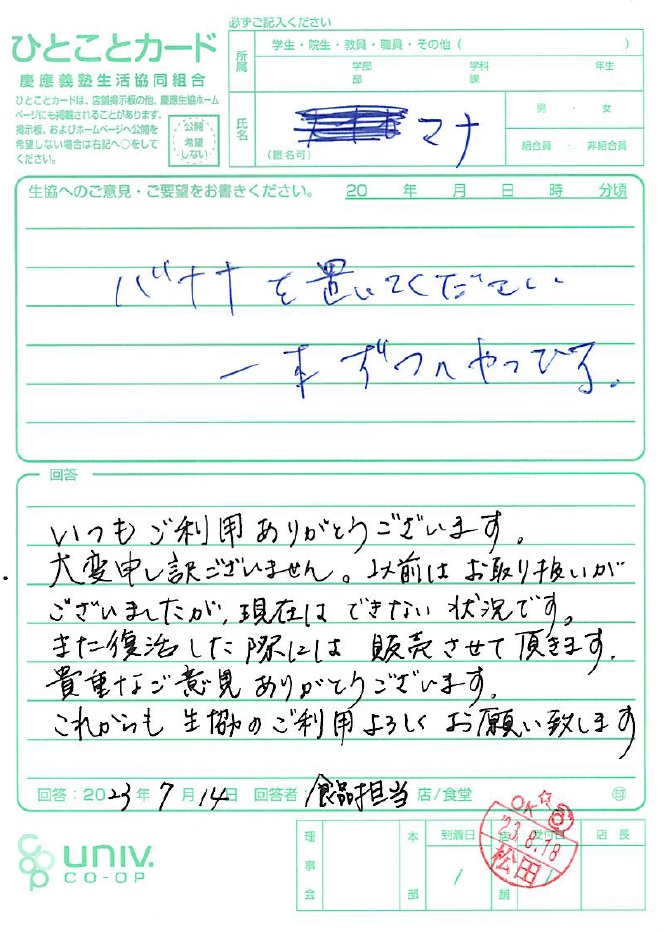 必ずご記入ください
ひとことカード
慶應義塾生活協同組合
ひとことカードは、店舗掲示板の他、慶應生協ホーム
ページにも掲載されることがあります。
掲示板、およびホームページへ公開を
希望しない場合は右記へ○をして
ください。
公開
希望
しない
所属
学生・院生・教員・職員・その他（ ）
学部 学科 年生
部 課
氏名
マナ
（匿名可）
男 ・ 女
組合員 ・ 非組合員
生協へのご意見・ご要望をお書きください。 20 年 月 日 時 分頃
バナナを置いてください
一本ずつ
回答
いつもご利用ありがとうございます。
大変申し訳ございません。以前はお取り扱いが
ございましたが、現在はできない状況です。
また復活した際には販売させて頂きます。
貴重なご意見ありがとうございます。
これからも生協のご利用よろしくお願い致します
回答：2023年7月14日 回答者：食品担当 店/食堂 印
univ.
CO-OP
理事会
本部
到着日
/
店長
OK☆
'23.8.18
松田